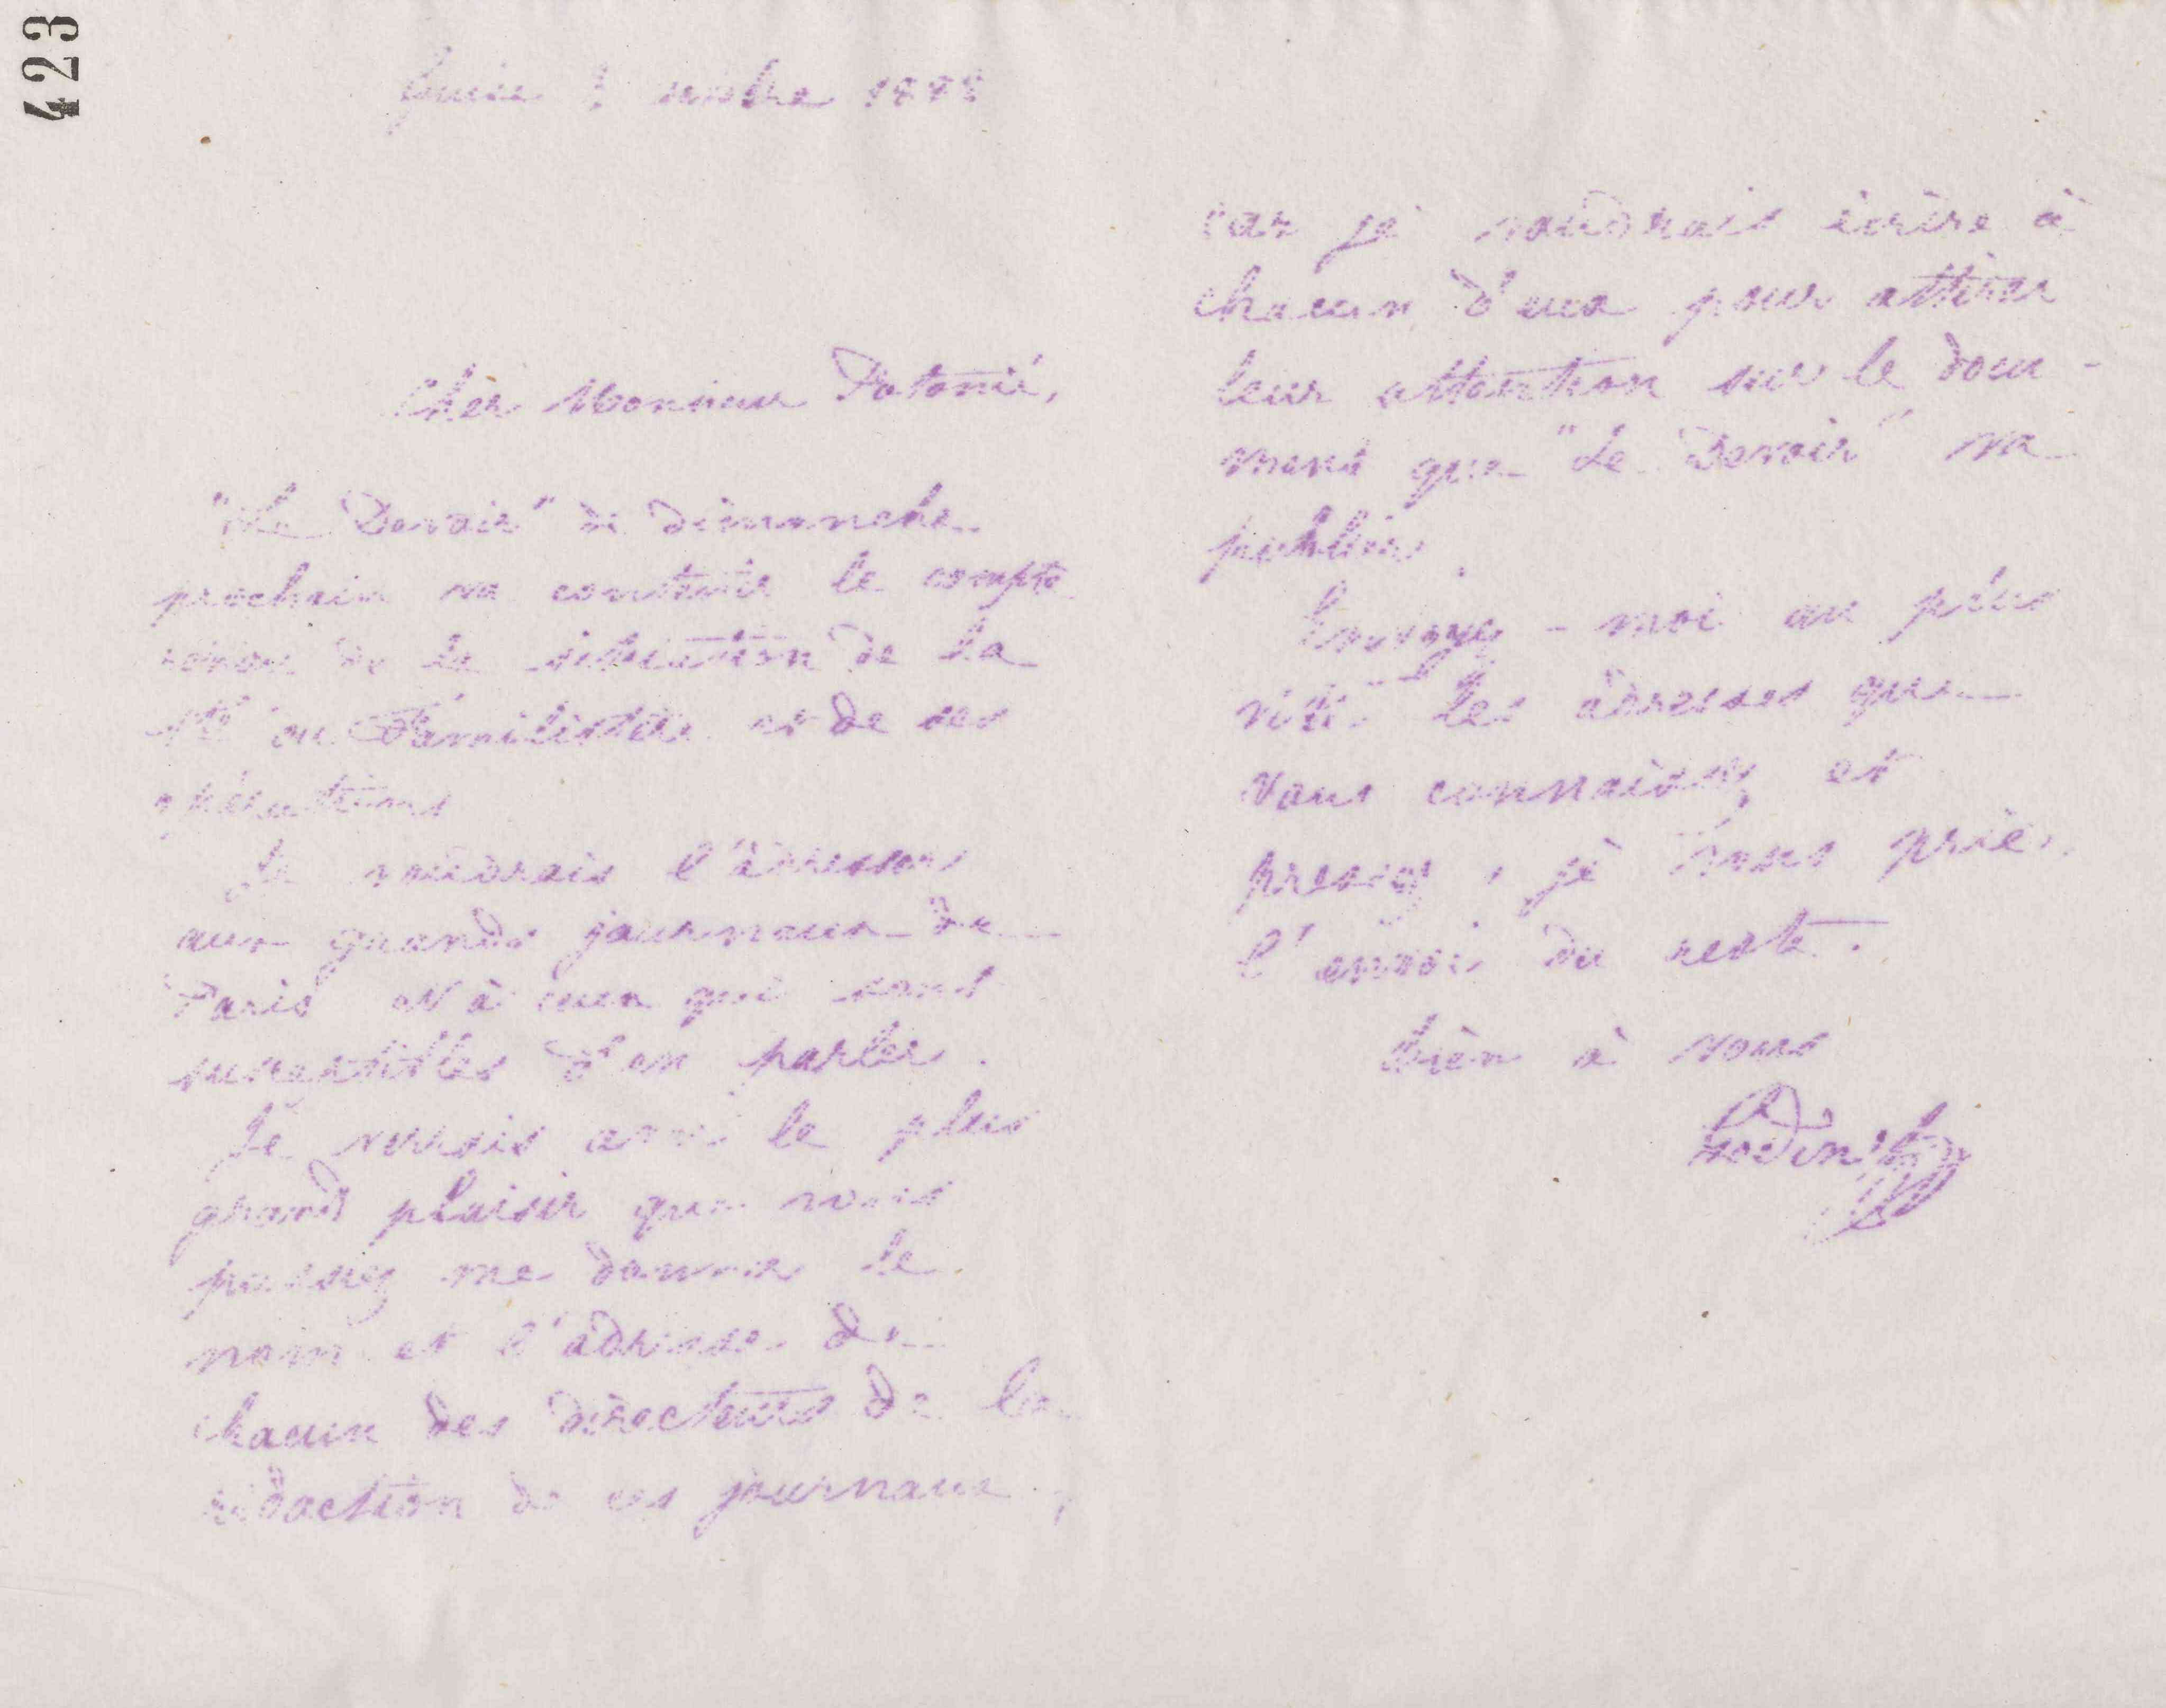 423
Guise
Cher Monsieur Potonié,
"Le Devoir" de dimanche
prochain va contenir le compte
rendu de la situation de la
Sté du Familistère et de ses
opérations
Je voudrais l'adresser
aux grands journaux de
Paris et à ceux qui sont
susceptibles d'en parler.
Je verrais avec le plus
grand plaisir que vous
pussiez me donner le
nom et l'adresse de
chacun des directeurs de la
rédaction de ces journaux,
car je voudrais écrire à
chacun d'eux pour attirer
leur attention sur le docu-
ment que "Le Devoir" va
publier.
Envoyez-moi au plus
vite les adresses que
vous connaissez et
pressez, je vous prie,
l'envoi du reste.
bien à vous
Godin